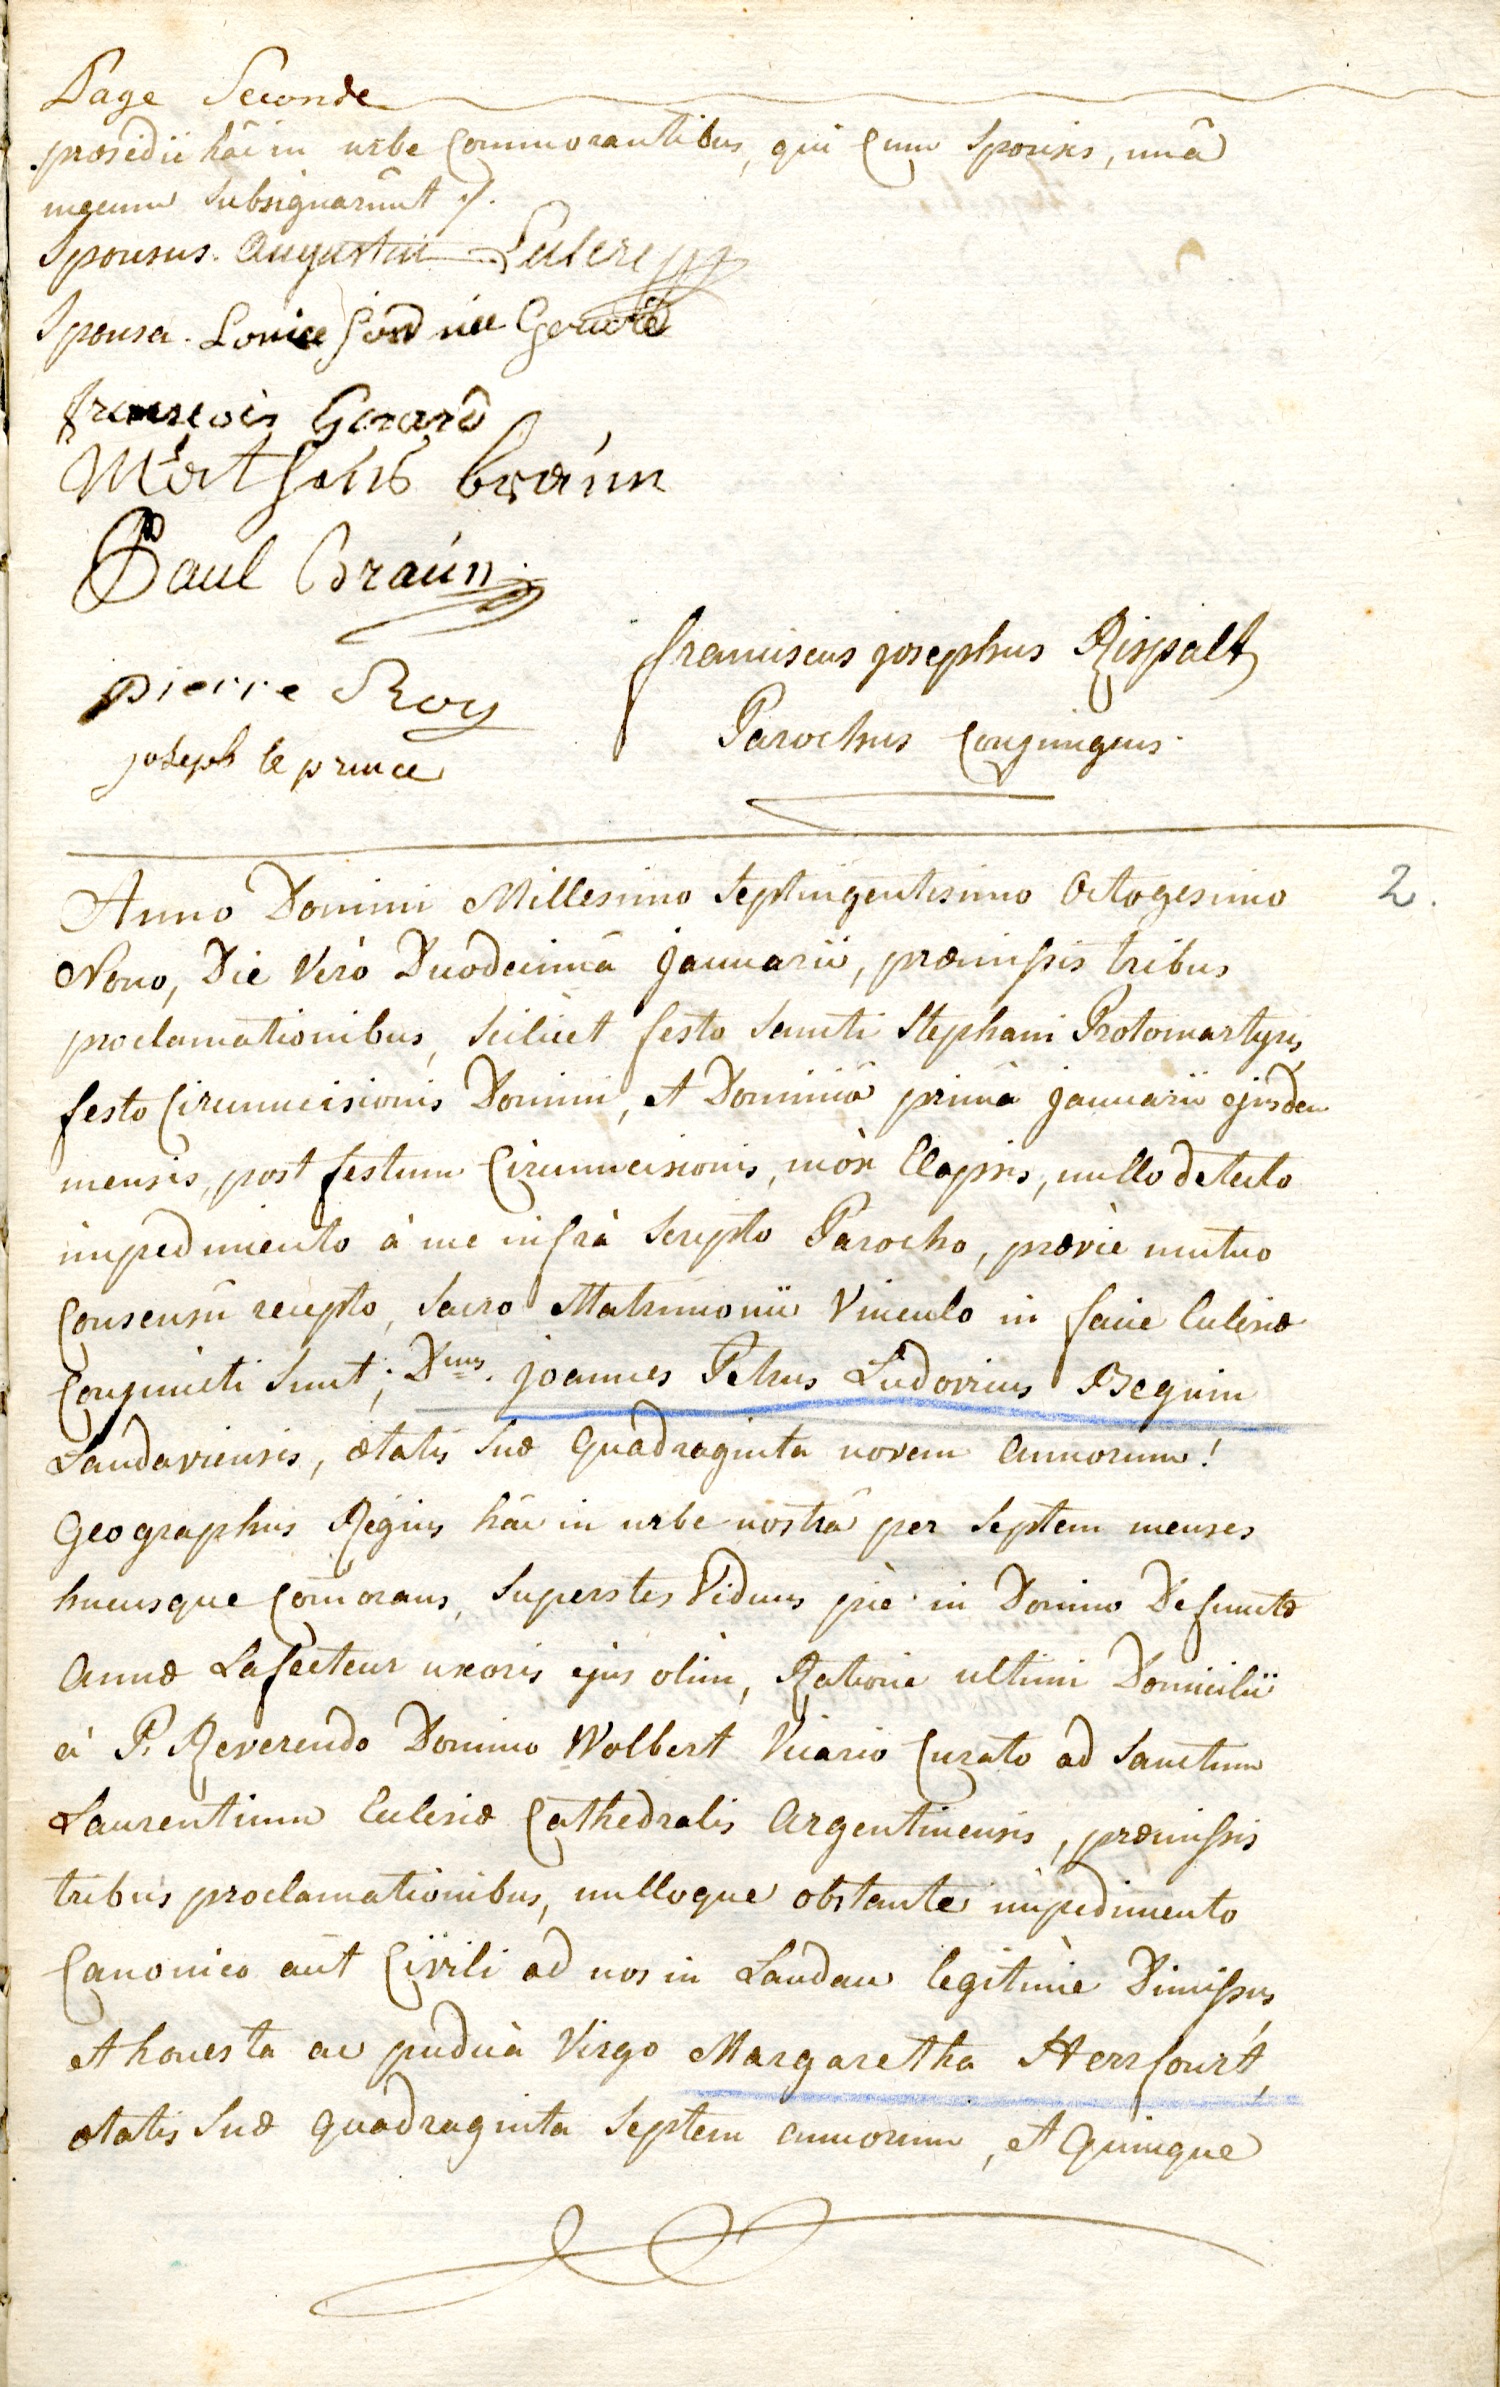 Page Seconde
præsidii hâc in urbe Commorantibus, qui Cum Sponsis, unâ
mecum subsignarunt ./.
Sponsus. augustin
Sponsa. née
françois Gerard
Matheis braún
Paul Braún
pierre Roy
joseph le prince
franciscus josephus Rispalt
Parochus Conjungens.
2.
Anno Domini Millesimo Septingentesimo Octogesimo
Nono, Die Vero Duodecimâ januarii, præmissis tribus
proclamationibus, scilicet festo Sancti Stephani Protomartyris,
festo Circumcisionis Domini, et Dominicâ primâ januarii ejusdem
mensis, post festum Circumcisionis, mòx Elapsis, nullo detecto
impedimento à me infrà scripto Parocho, prævie mutuo
Consensu recepto, sacro Matrimonii Vinculo in facie Ecclesiæ
Conjuncti Sunt; Dnus. joannes Petrus Ludovicus Beguin
Landaviensis, ætatis Suæ quadraginta novem annorum!
Geographus Regius hâc in urbe nostrâ per Septem menses
hucusque Com̄orans, Superstes Viduus piè in Domino Defunctæ
annæ Lafecteur uxoris ejus olim, Ratione ultimi Domicilii
à P. Reverendo Domino Wolbert Vicario Curato ad Sanctum
Laurentium Ecclesiæ Cathedralis Argentinensis, præmissis
tribus proclamationibus, nulloque obstante impedimento
Canonico aut Civili ad nos in Landau legitimè Dimissus,
et honesta ac pudica Virgo Margaretha Herrfourt,
ætatis Suæ quadraginta Septem annorum, et quinque